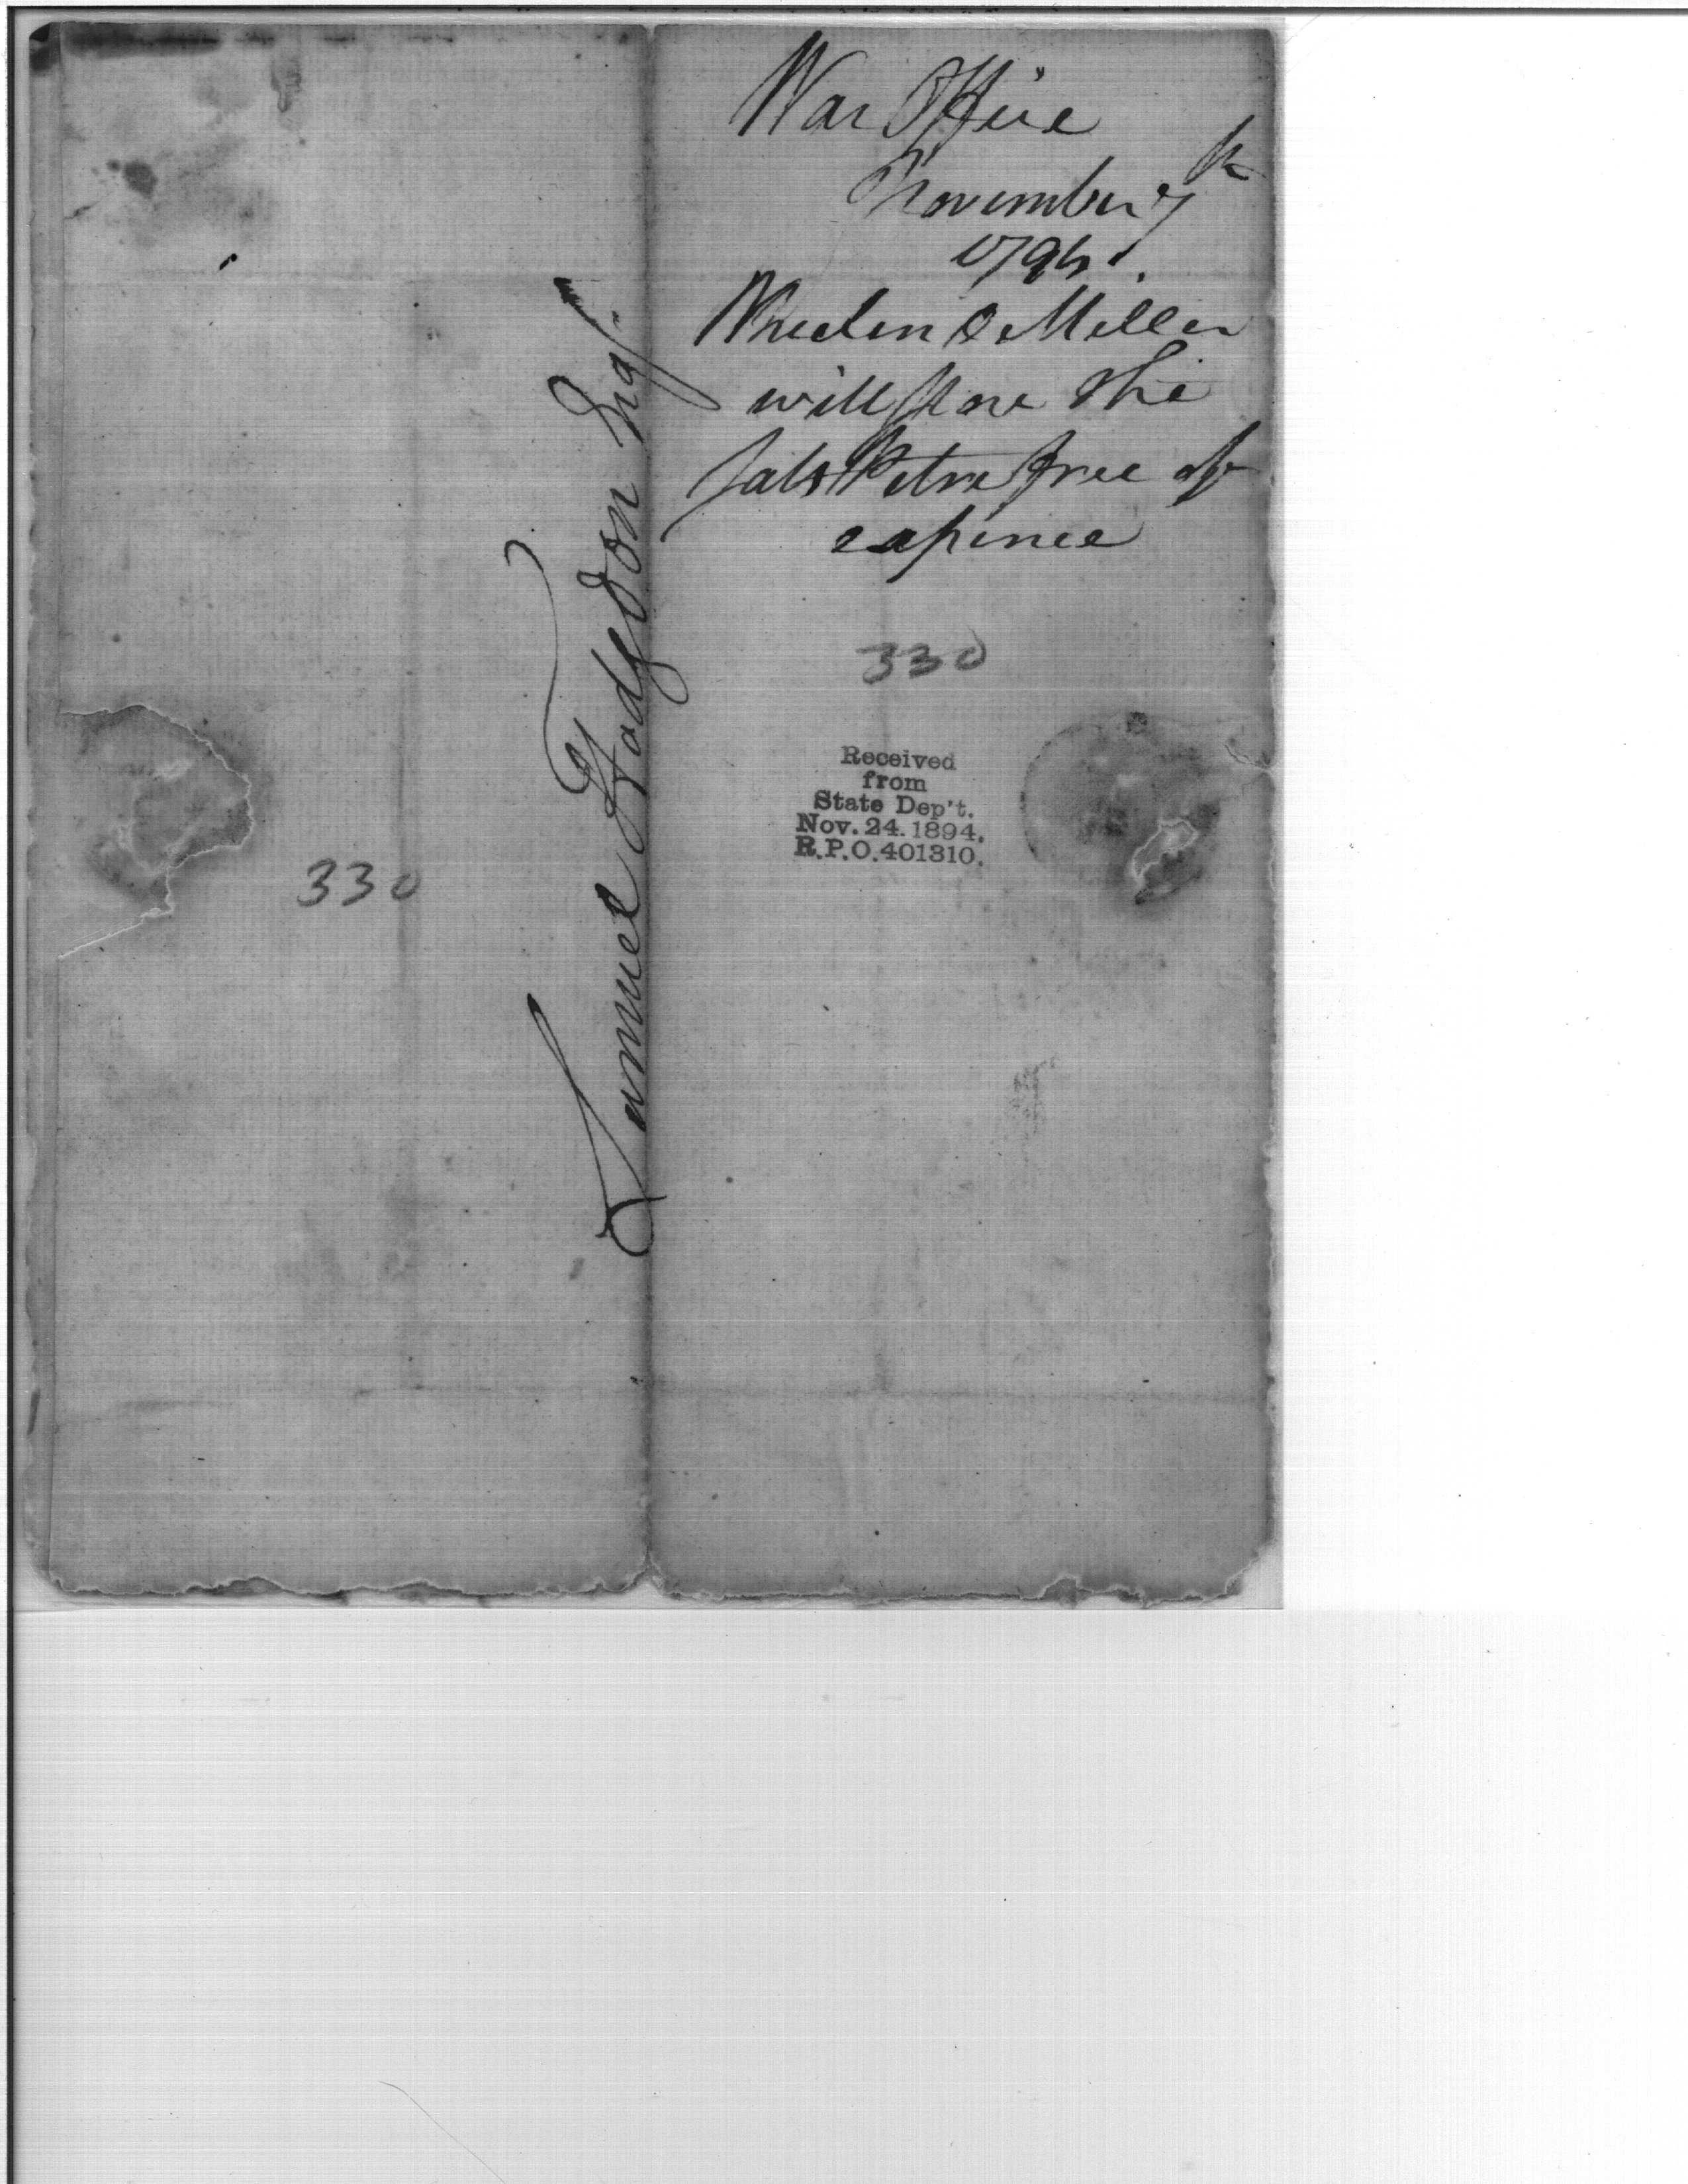 War Office
November 7th
1794.
Wheelen & Miller
will store the
salt Petre free of
expence
330
Received
from
State Dep't.
Nov. 24. 1894.
R.P.O. 401310.
Samuel Hodgdon Esqr
330